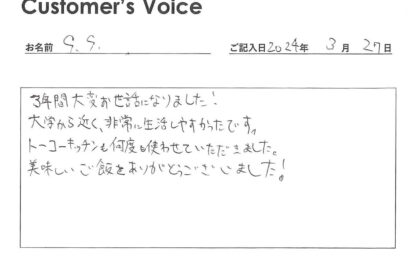 Customer's Voice
お名前 S. S. ご記入日2024年 3月27日
3年間大変お世話になりました!
大学から近く、非常に生活しやすかったです。
トーコーキッチンも何度も使わせていただきました。
美味しいご飯をありがとうございました!